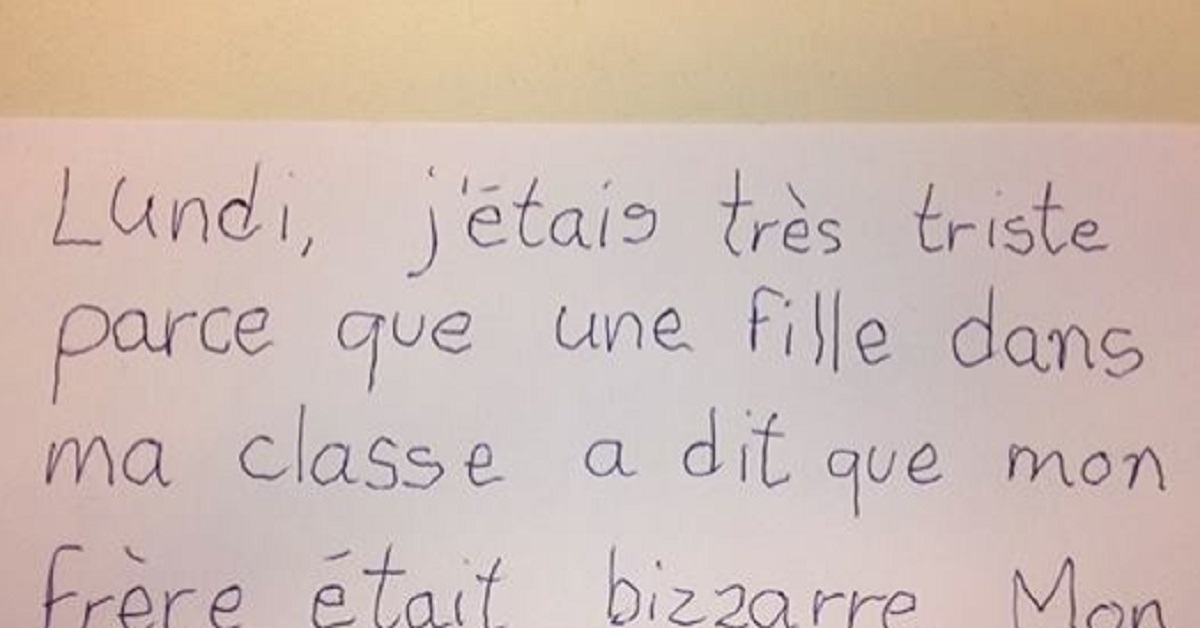 Lundi, j'étais très triste
parce que une fille dans
ma classe a dit que mon
frère était bizzarre Mon